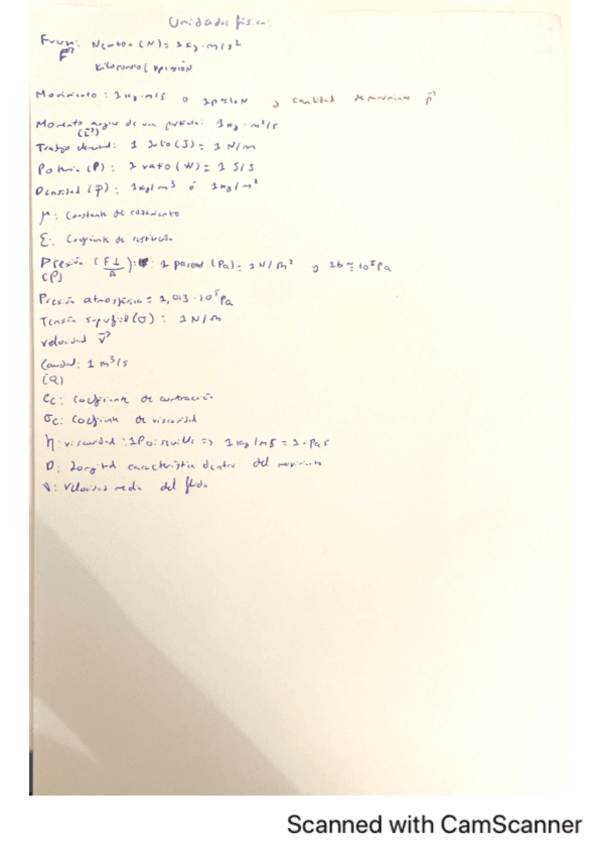 Unidades física:
Fuerza: Newton (N) = 1 Kg · m/s²
F
Movimiento: 1 Kg · m/s o y cantidad de movimiento p
Momento angular de una partícula: 1 Kg · m²/s
(L)
Trabajo: 1 Julio (J) = 1 N/m
Potencia (P): 1 vatio (W) = 1 J/s
Densidad (ρ): 1 Kg/m³ ó 1 Kg/m²
μ: Constante de rozamiento
Σ: Coeficiente de restitución
Presión (F⊥/A): 1 pascal (Pa) = 1 N/m² y 1b = 10⁵ Pa
(P)
Presión atmosférica = 1,013 · 10⁵ Pa
Tensión superficial (σ): 1 N/m
velocidad v
Caudal: 1 m³/s
(Q)
Cc: coeficiente de contracción
σc: coeficiente de viscosidad
η: viscosidad: 1 Poiseuille => 1 Kg/ms = 1 · Pa s
D: Longitud característica dentro del movimiento
v: velocidad media del fluido
Scanned with CamScanner